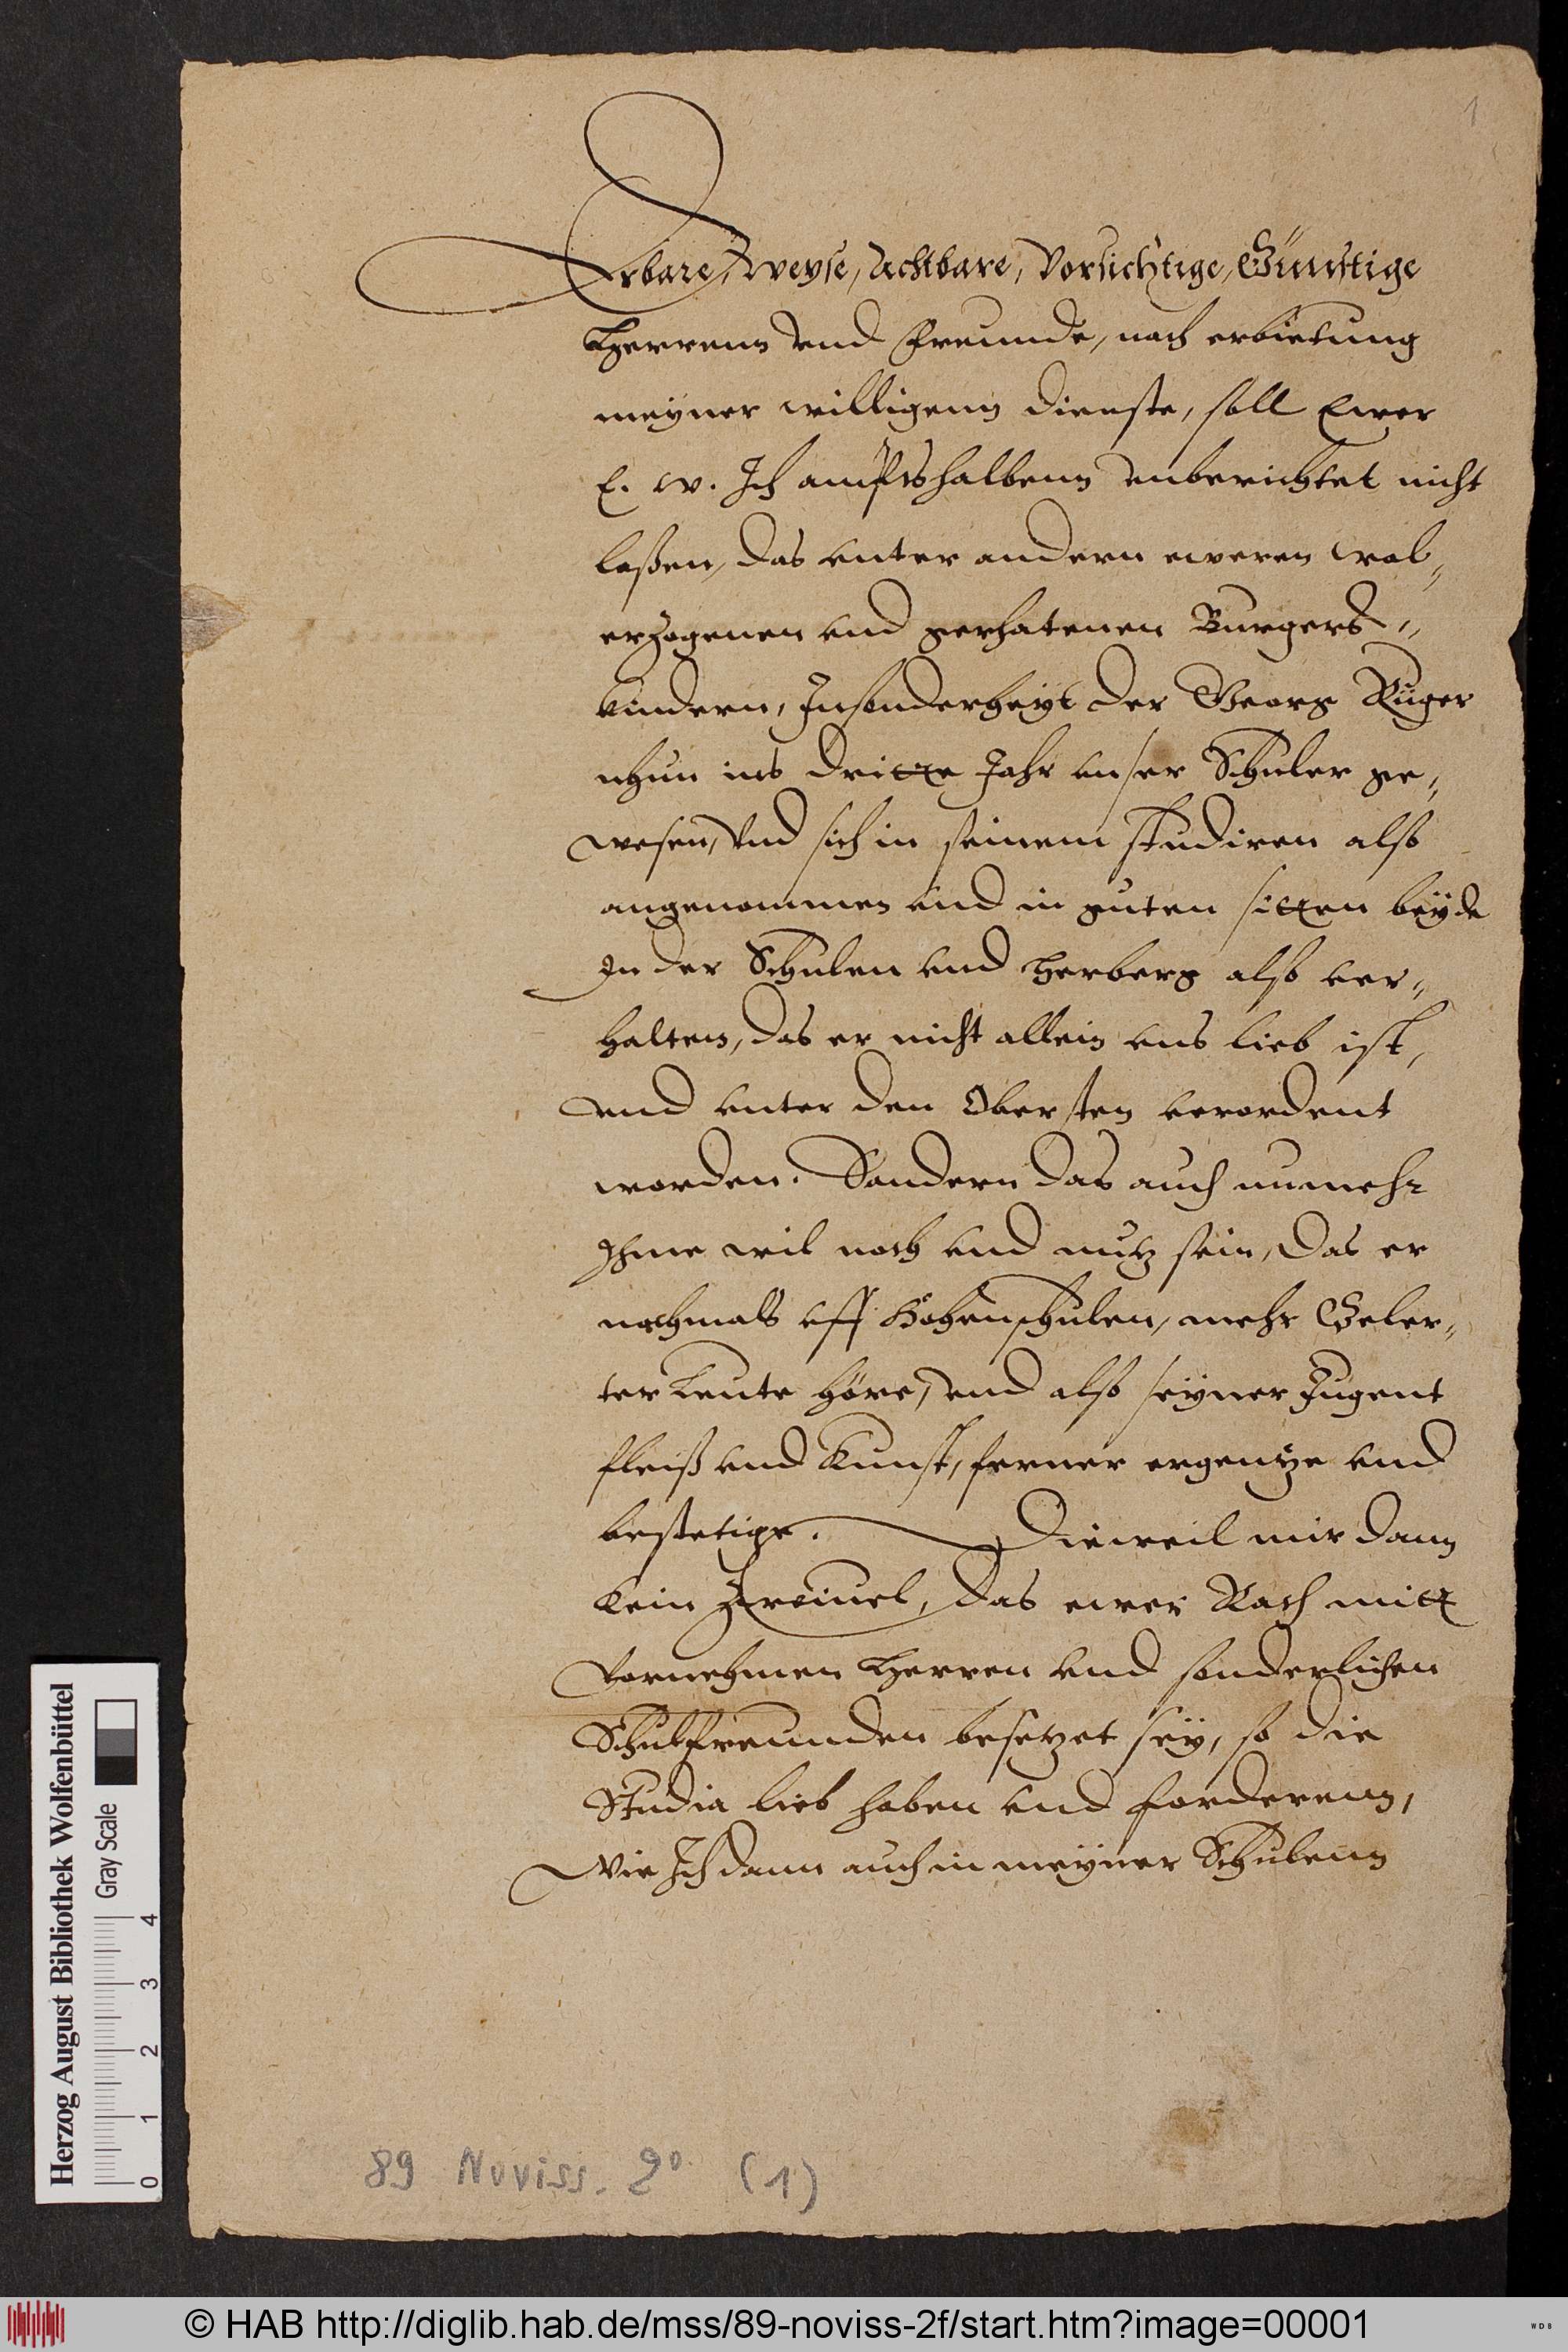 1
Erbare, Weyse, Achtbare, Vorsichtige, Günstige
Herrenn vnd Freunde, nach erbietung
meyner willigenn dienste, soll Ewer
E. W. Ich amptshalbenn vnberichtet nicht
laßen, das vnter andern eweren wol„
erzogenen vnd gerhatenen Burgers„
kindern, Insonderheyt der Georg Rüger
nhun ins dritte Jahr vnser Schuler ge„
wesen, Vnd sich in seinem studiren also
angenommen vnd in guten sitten beyde
In der Schulen vnd Herberg also ver„
halten, das er nicht allein vns lieb ist,
vnd vnter den Obersten verordent
worden. Sondern das auch numehr
Ihme wil noth vnd nutz sein, das er
nochmals vff Hohenschulen, mehr Geler„
ter Leute höre, vnd also seyner Jugent
fleiß vnd Kunst, ferner ergentze vnd
bestetige. Dieweil mir dann
kein Zweiuel, das ewer Rath mitt
Vornehmen Herren vnd sonderlichen
Schulfreunden besetzet sey, so die
Studia lieb haben vnd forderenn,
Wie Ich dann auch in meyner Schulenn
89 Noviss. 2° (1)
Herzog August Bibliothek Wolfenbüttel
Gray Scale
0 1 2 3 4
© HAB http://diglib.hab.de/mss/89-noviss-2f/start.htm?image=00001
WDB